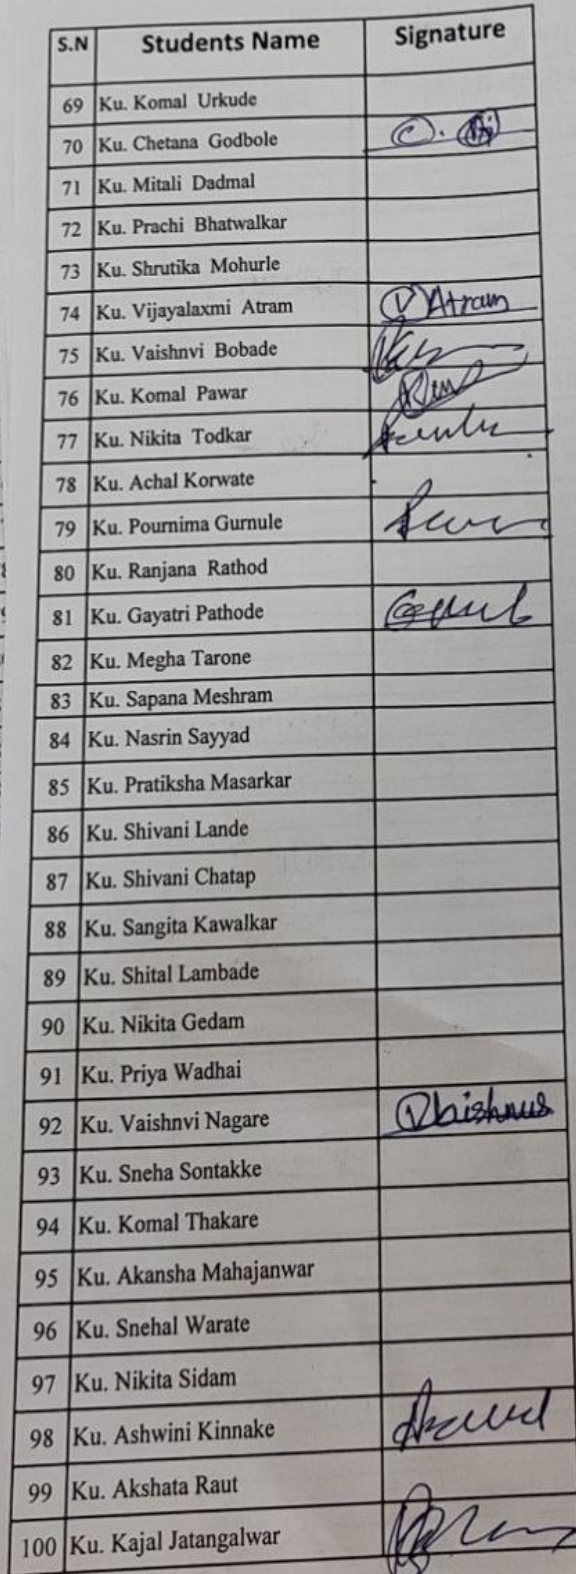 S.N Students Name Signature
69 Ku. Komal Urkude
70 Ku. Chetana Godbole
71 Ku. Mitali Dadmal
72 Ku. Prachi Bhatwalkar
73 Ku. Shrutika Mohurle
74 Ku. Vijayalaxmi Atram V Atram
75 Ku. Vaishnvi Bobade
76 Ku. Komal Pawar
77 Ku. Nikita Todkar
78 Ku. Achal Korwate
79 Ku. Pournima Gurnule
80 Ku. Ranjana Rathod
81 Ku. Gayatri Pathode
82 Ku. Megha Tarone
83 Ku. Sapana Meshram
84 Ku. Nasrin Sayyad
85 Ku. Pratiksha Masarkar
86 Ku. Shivani Lande
87 Ku. Shivani Chatap
88 Ku. Sangita Kawalkar
89 Ku. Shital Lambade
90 Ku. Nikita Gedam
91 Ku. Priya Wadhai
92 Ku. Vaishnvi Nagare
93 Ku. Sneha Sontakke
94 Ku. Komal Thakare
95 Ku. Akansha Mahajanwar
96 Ku. Snehal Warate
97 Ku. Nikita Sidam
98 Ku. Ashwini Kinnake
99 Ku. Akshata Raut
100 Ku. Kajal Jatangalwar